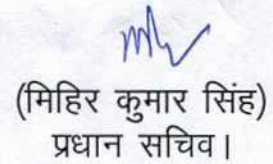 (मिहिर कुमार सिंह)
प्रधान सचिव।